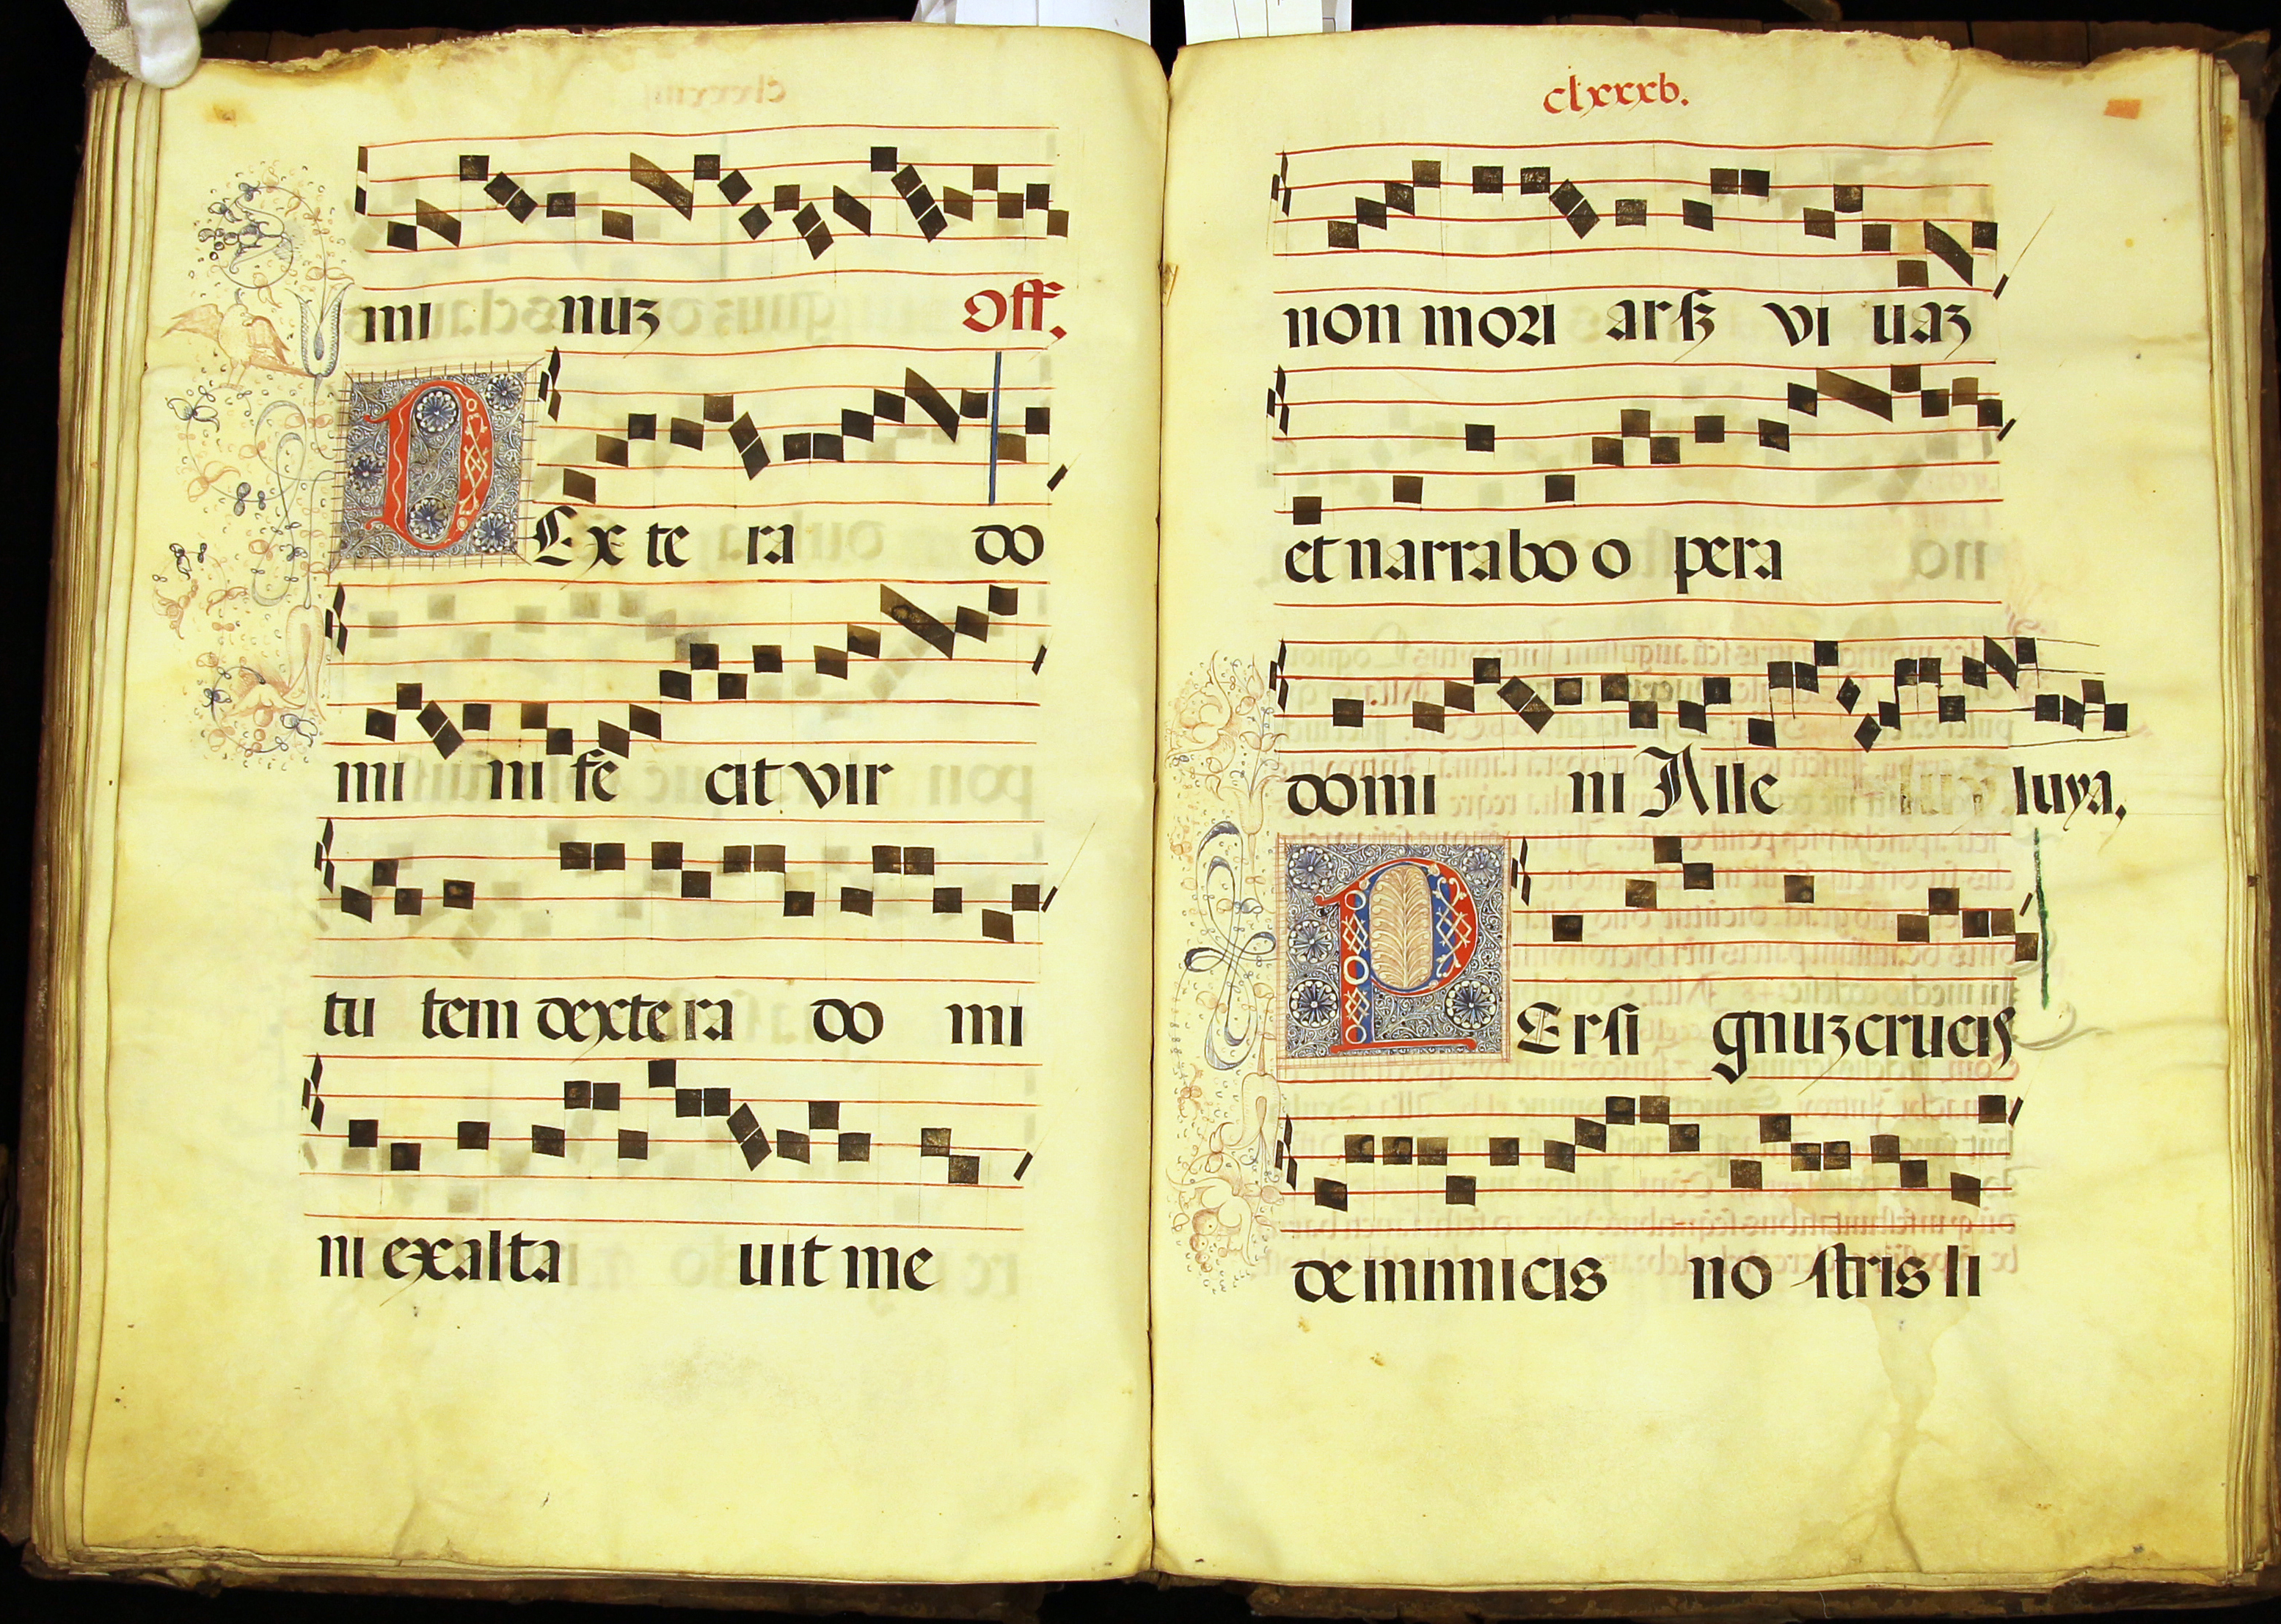 mi nuz Off.
DEx te ra do
mi ni fe cit vir
tu tem dextera do mi
ni exalta uit me
clxxxb.
non mori arſz vi uaz
et narrabo o pera
domi ni Alle luya.
PErſi gnuz crucis
de inimicis no ſtris li